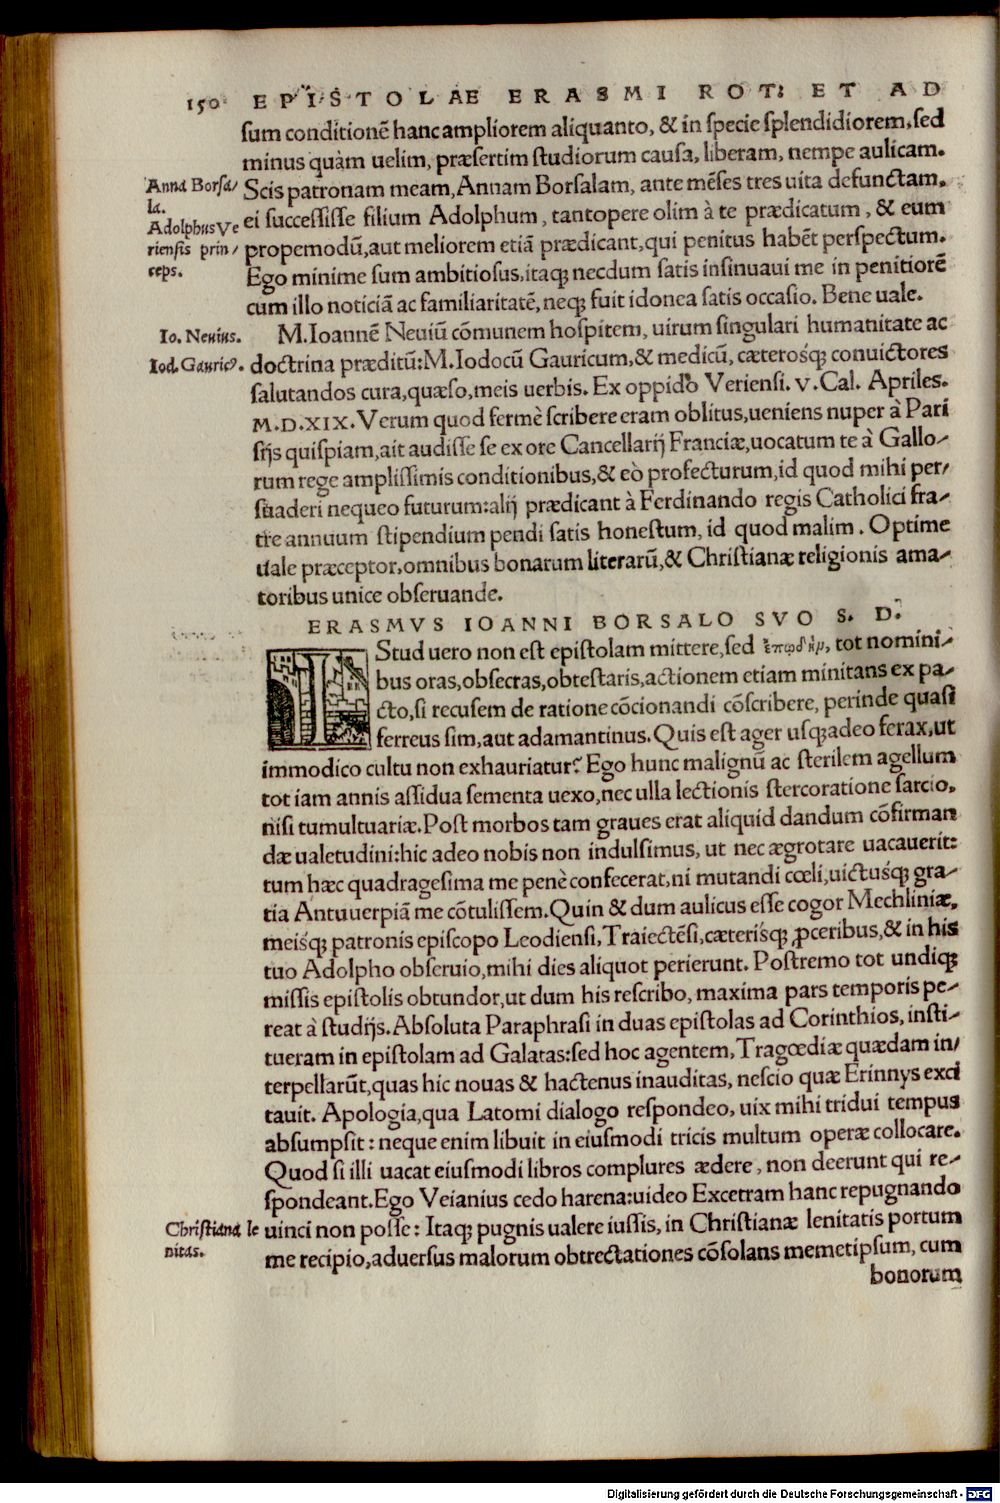 150 EPISTOLAE ERASMI ROT: ET AD
sum conditionē hanc ampliorem aliquanto, & in specie splendidiorem, sed
minus quàm uelim, præsertim studiorum causa, liberam, nempe aulicam.
Anna Borsa/
la.
Scis patronam meam, Annam Borsalam, ante mēses tres uita defunctam,
Adolphus Ve
riensis prin/
ceps.
ei successisse filium Adolphum, tantopere olim à te prædicatum, & eum
propemodū, aut meliorem etiā prædicant, qui penitus habēt perspectum.
Ego minime sum ambitiosus, itaq; necdum satis insinuaui me in penitiorē
cum illo noticiā ac familiaritatē, neq; fuit idonea satis occasio. Bene uale.
Io. Neuius.
M. Ioannē Neuiū cōmunem hospitem, uirum singulari humanitate ac
Iod. Gauricꝰ.
doctrina præditū: M. Iodocū Gauricum, & medicū, cæterosq; conuictores
salutandos cura, quæso, meis uerbis. Ex oppido Veriensi. v. Cal. Apriles.
M.D.XIX. Verum quod fermè scribere eram oblitus, ueniens nuper à Pari
sijs quispiam, ait audisse se ex ore Cancellarij Franciæ, uocatum te à Gallo/
rum rege amplissimis conditionibus, & eò profecturum, id quod mihi per/
suaderi nequeo futurum: alij prædicant à Ferdinando regis Catholici fra/
tre annuum stipendium pendi satis honestum, id quod malim. Optime
uale præceptor, omnibus bonarum literarū, & Christianæ religionis ama/
toribus unice obseruande.
ERASMVS IOANNI BORSALO SVO S. D.
IStud uero non est epistolam mittere, sed ἐπῳδὴν, tot nomini/
bus oras, obsecras, obtestaris, actionem etiam minitans ex pa/
cto, si recusem de ratione cōcionandi cōscribere, perinde quasi
ferreus sim, aut adamantinus. Quis est ager usq; adeo ferax, ut
immodico cultu non exhauriatur? Ego hunc malignū ac sterilem agellum
tot iam annis assidua sementa uexo, nec ulla lectionis stercoratione sarcio,
nisi tumultuariæ. Post morbos tam graues erat aliquid dandum cōfirman
dæ ualetudini: hic adeo nobis non indulsimus, ut nec ægrotare uacauerit:
tum hæc quadragesima me penè confecerat, ni mutandi cœli, uictusq; gra/
tia Antuuerpiā me cōtulissem. Quin & dum aulicus esse cogor Mechliniæ,
meisq; patronis episcopo Leodiensi, Traiectēsi, cæterisq; ꝓceribus, & in his
tuo Adolpho obseruio, mihi dies aliquot perierunt. Postremo tot undiq;
missis epistolis obtundor, ut dum his rescribo, maxima pars temporis pe/
reat à studijs. Absoluta Paraphrasi in duas epistolas ad Corinthios, insti/
tueram in epistolam ad Galatas: sed hoc agentem, Tragœdiæ quædam in/
terpellarūt, quas hic nouas & hactenus inauditas, nescio quæ Erinnys exci
tauit. Apologia, qua Latomi dialogo respondeo, uix mihi tridui tempus
absumpsit: neque enim libuit in eiusmodi tricis multum operæ collocare.
Quod si illi uacat eiusmodi libros complures ædere, non deerunt qui re/
spondeant. Ego Veianius cedo harena: uideo Excetram hanc repugnando
Christiana le
nitas.
uinci non posse: Itaq; pugnis ualere iussis, in Christianæ lenitatis portum
me recipio, aduersus malorum obtrectationes cōsolans memetipsum, cum
bonorum
Digitalisierung gefördert durch die Deutsche Forschungsgemeinschaft - DFG